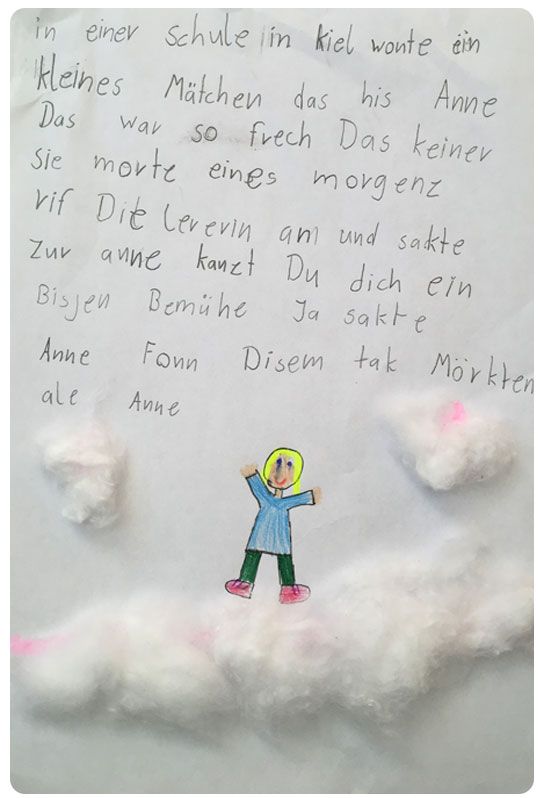 in einer schule in kiel wonte ein
kleines Mätchen das his Anne
Das war so frech Das keiner
sie morte eines morgenz
rif Die Lererin am und sakte
zur anne kanzt Du dich ein
Bisjen Bemühe Ja sakte
Anne Fonn Disem tak Mörkten
ale Anne